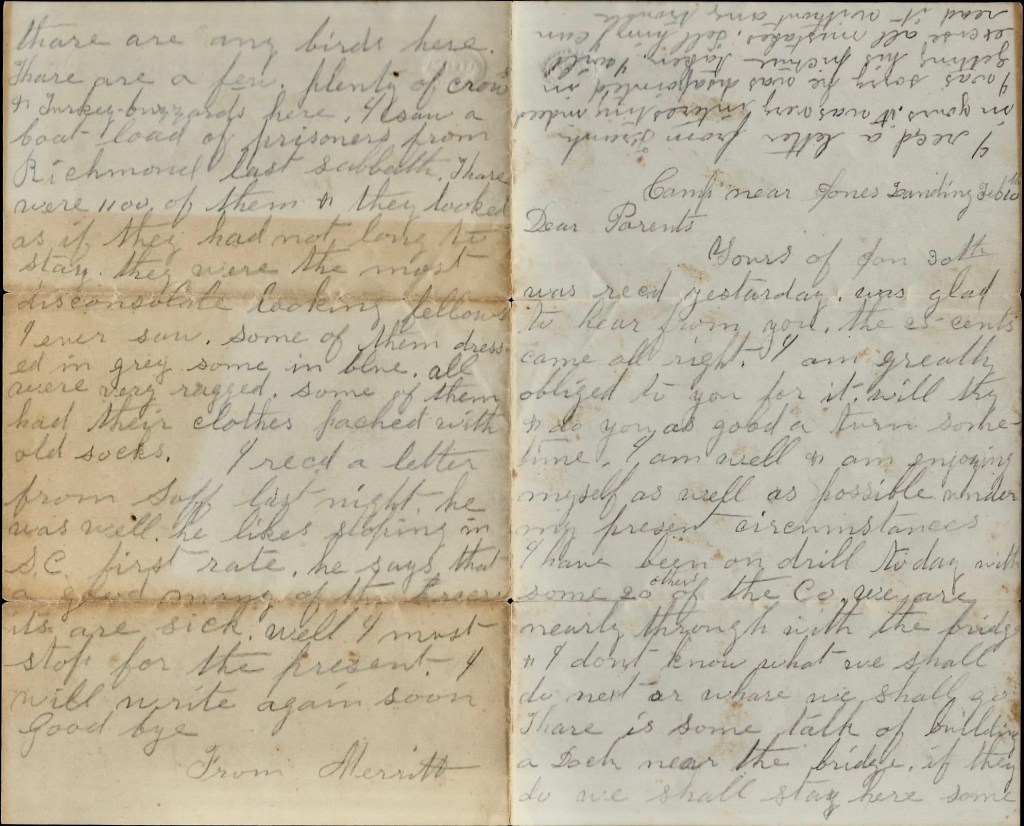 Camp near Jones Landing Feb 10th
Dear Parents
Yours of Jan 30th
was recd yesterday. was glad
to hear from you. the 25 cents
came all right. I am greatly
obliged to you for it. will try
& do you as good a turn some-
time. I am well & am enjoying
myself as well as possible under
my present circumstances
I have been on drill to day with
some 20 others of the Co. we are
nearly through with the bridge
& I dont know what we shall
do next or whare we shall go
Thare is some talk of building
a Dock near the bridge. if they
do we shall stay here some
thare are any birds here.
Thare are a few. plenty of crows
& Turkey-buzzards here. I saw a
boat load of prisoners from
Richmond last sabbath. Thare
were 1100, of them & they looked
as if they had not long to
stay. they were the most
disconsolate looking fellows
I ever saw. some of them dress-
ed in grey some in blue. all
were very ragged. some of them
had their clothes patched with
old socks. I recd a letter
from Saff last night. he
was well. he likes stoping in
S.C. first rate. he says that
a good many of the Recru
its are sick. well I must
stop for the present. I
will write again soon
Good bye
From Merritt
I recd a letter from Frank
in yours. it was very interesting indeed
I was sorry he was disapointed in
getting his picture taken, I will
excuse all mistakes. tell him I can
read it without any trouble